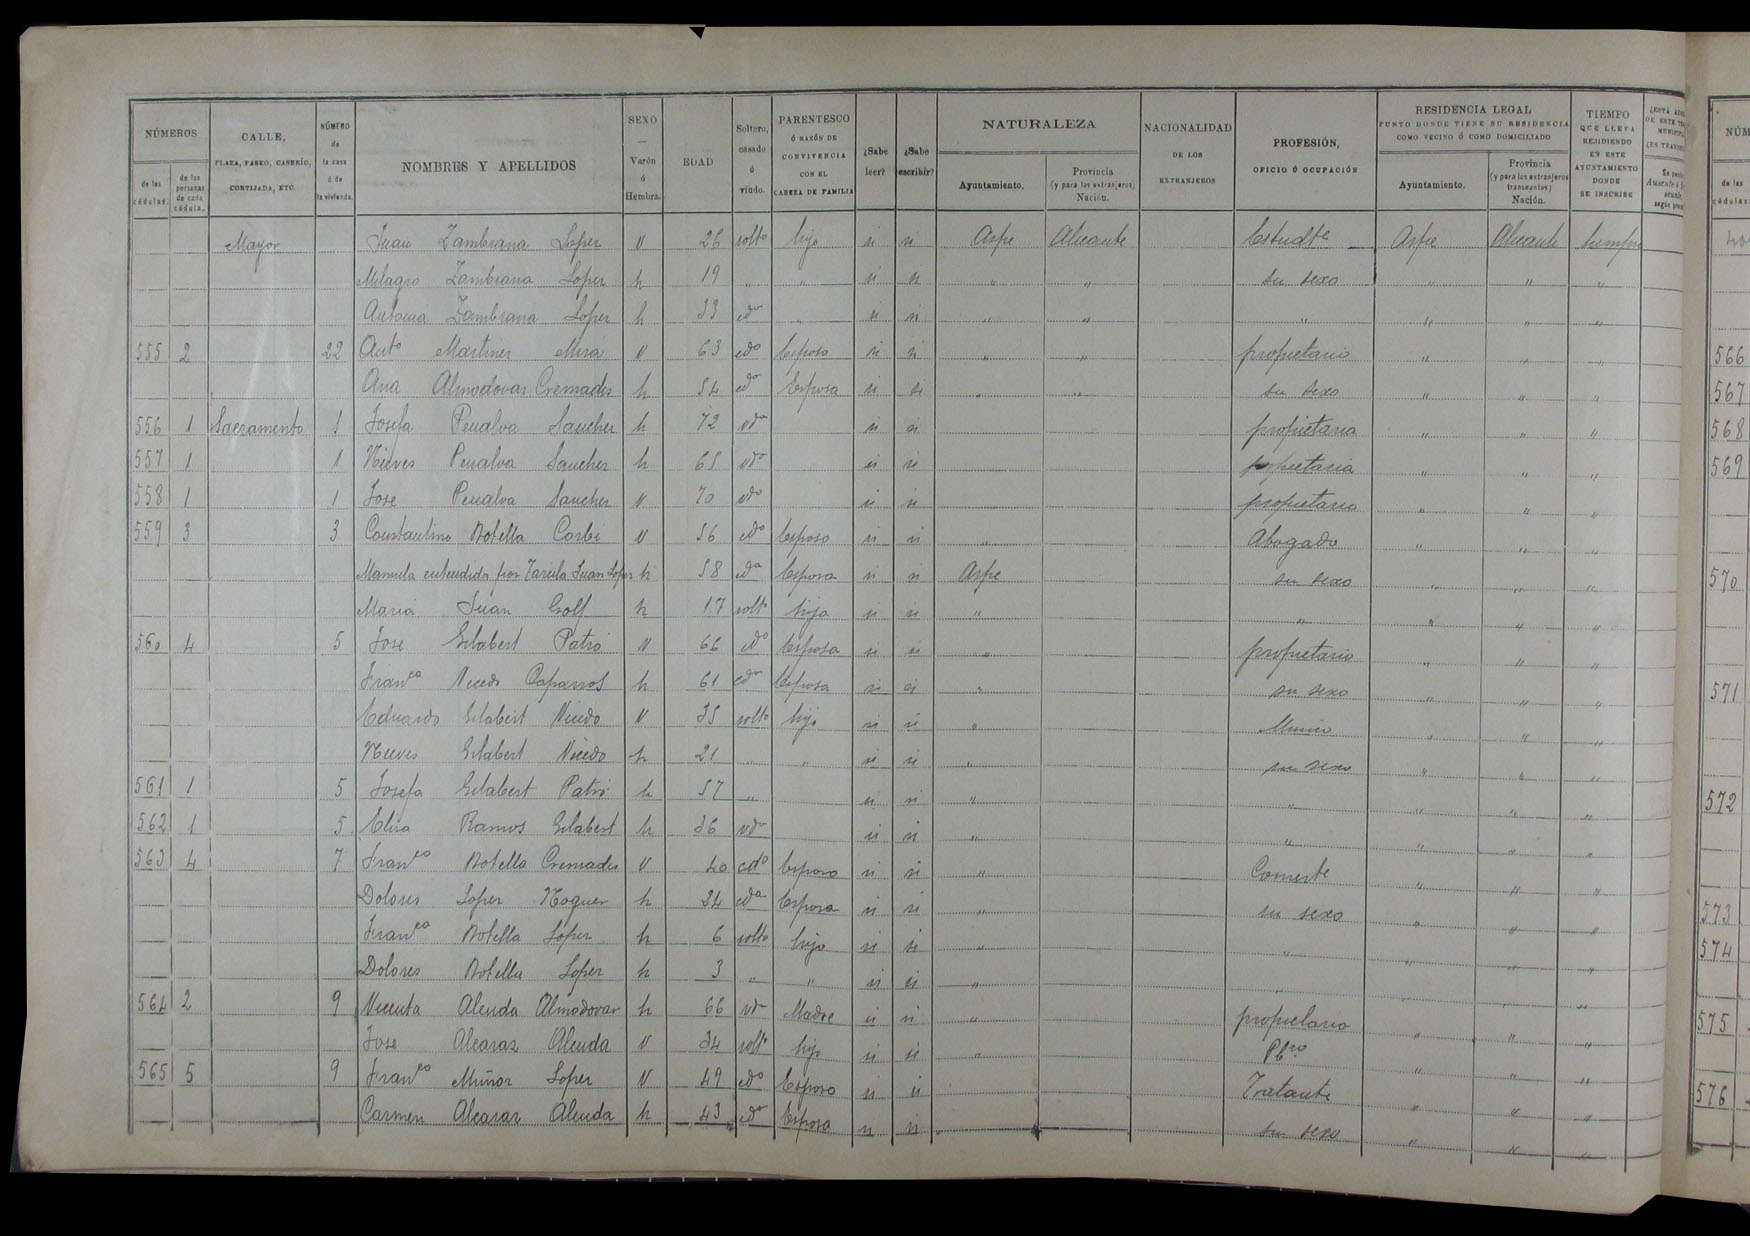 NÚMEROS
de las cédulas.
de las personas de cada cédula.
CALLE,
PLAZA, PASEO, CASERÍO,
CORTIJADA, ETC.
NÚMERO de la casa ó de la vivienda.
NOMBRES Y APELLIDOS
SEXO
—
Varón ó Hembra.
EDAD
Soltero, casado ó viudo.
PARENTESCO
Ó RAZÓN DE CONVIVENCIA CON EL CABEZA DE FAMILIA
¿Sabe leer?
¿Sabe escribir?
NATURALEZA
Ayuntamiento.
Provincia (y para los extranjeros) Nación.
NACIONALIDAD
DE LOS EXTRANJEROS
PROFESIÓN,
OFICIO Ó OCUPACIÓN
RESIDENCIA LEGAL
PUNTO DONDE TIENE SU RESIDENCIA COMO VECINO Ó COMO DOMICILIADO
Ayuntamiento.
Provincia (y para los extranjeros transeuntes) Nación.
TIEMPO
QUE LLEVA RESIDIENDO EN ESTE AYUNTAMIENTO DONDE SE INSCRIBE
Mayor Juan Zambrana Lopez V 26 solto hijo si si Aspe Alicante Estudte Aspe Alicante siempre
Milagro Zambrana Lopez h 19 " " si si " " su sexo " " "
Antonia Zambrana Lopez h 33 cda " si si " " " " " "
555 2 22 Anto Martinez Mira V 63 cdo Esposo si si " " propietario " " "
Ana Almodovar Cremades h 54 cda Esposa si si " " su sexo " " "
556 1 Sacramento 1 Josefa Penalva Sanchez h 72 vda si si propietaria " " "
557 1 1 Nieves Penalva Sanchez h 65 vda si si propietaria " " "
558 1 1 Jose Penalva Sanchez V 70 vdo si si propietario " " "
559 3 3 Constantino Botella Corbi V 56 cdo Esposo si si " Abogado " " "
Manuela entendida por Zarcila Juan Lopez h 58 cda Esposa si si Aspe su sexo " " "
Maria Juan Golf h 17 solto hija si si " " " " "
560 4 5 Jose Gilabert Patró V 66 cdo Esposo si si " propietario " " "
Franca Vicedo Caparros h 61 cda Esposa si si " su sexo " " "
Eduardo Gilabert Vicedo V 35 solto hijo si si " Musico " " "
Nieves Gilabert Vicedo h 21 " " si si " su sexo " " "
561 1 5 Josefa Gilabert Patró h 57 " si si " " " " "
562 1 5 Elisa Ramos Gilabert h 36 vda si si " " " " "
563 4 7 Franco Botella Cremades V 40 cdo Esposo si si " Comerte " " "
Dolores Lopez Noguer h 34 cda Esposa si si " su sexo " " "
Franca Botella Lopez h 6 solto hija si si " " " " "
Dolores Botella Lopez h 3 " " si si " " " " "
564 2 9 Vicenta Alenda Almodovar h 66 vda Madre si si " propietaria " " "
Jose Alcaraz Alenda V 34 solto hijo si si " Pbro " " "
565 5 9 Franco Muñoz Lopez V 49 cdo Esposo si si Tratante " " "
Carmen Alcaraz Alenda h 43 cda Esposa si si su sexo " " "
NÚM
de las cédulas
566
567
568
569
570
571
572
573
574
575
576